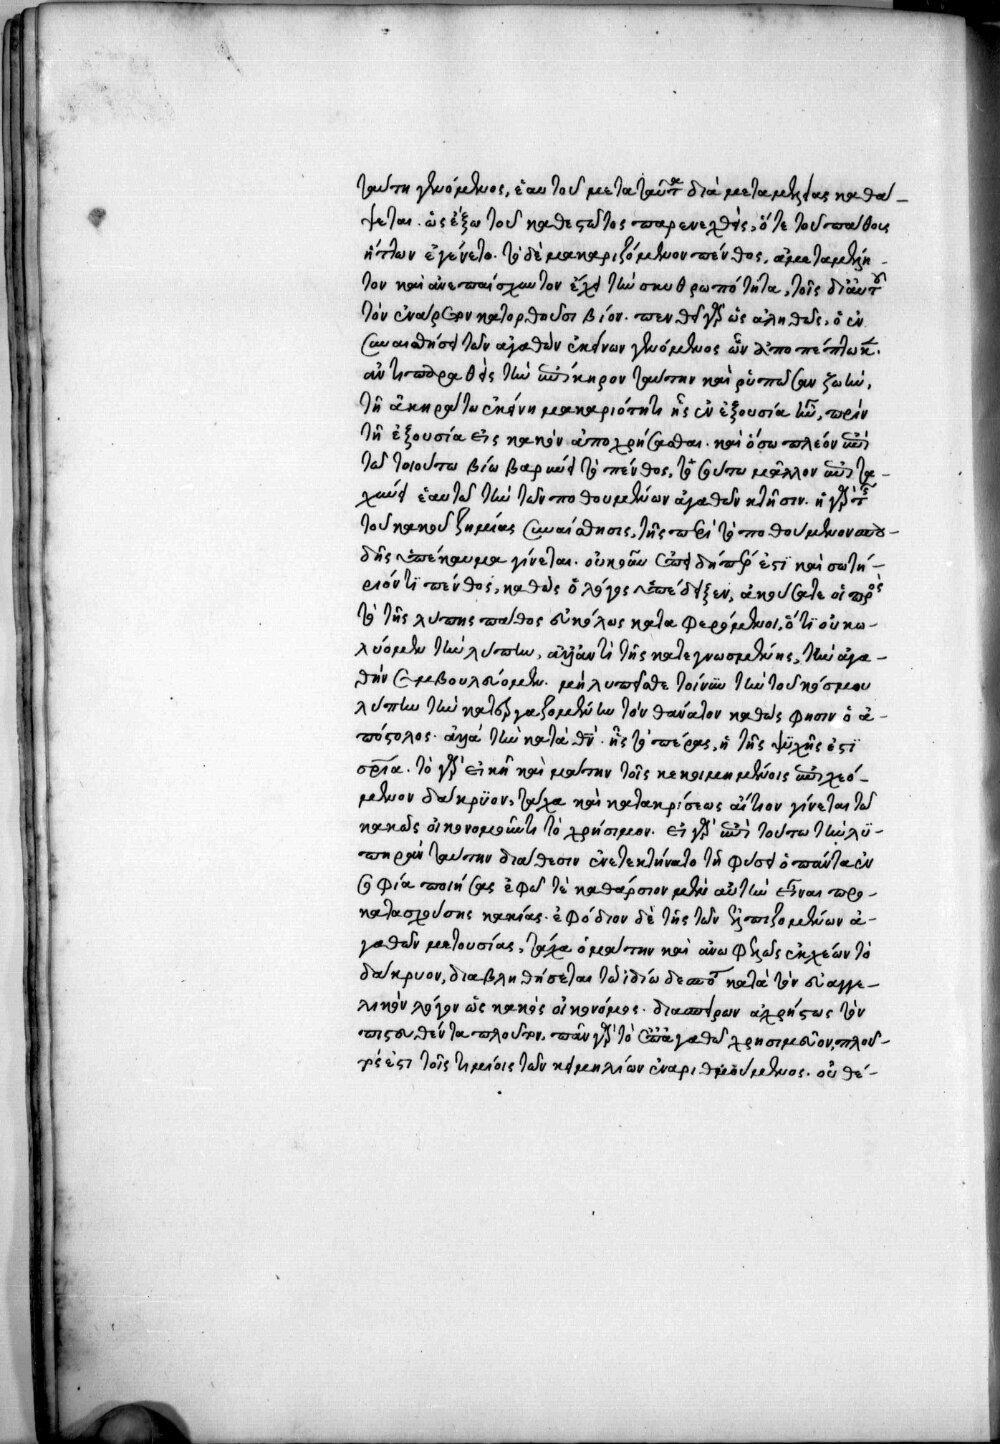 ταύτη γενόμενος, ἑαυτοῦ μετὰ ταῦτα διὰ μεταμελείας καθά-
ψεται. ὡς ἔξω τοῦ καθεστῶτος παρενεχθεὶς, ὅτε τοῦ πάθους
ἥττων ἐγένετο. τὸ δὲ μακαριζόμενον πένθος, ἀμεταμέλη-
τον καὶ ἀνεπαίσχυντον ἔχει τὴν σκυθρωπότητα, τοῖς δι' αὐτοῦ
τὸν ἐνάρετον κατορθοῦσι βίον. πενθεῖ γὰρ ὡς ἀληθῶς, ὁ ἐν
συναισθήσει τῶν ἀγαθῶν ἐκείνων γενόμενος ὧν ἀποπέπτωκε.
ἀντιπαραθεὶς τὴν ἐπίκηρον ταύτην καὶ ῥυπῶσαν ζωὴν,
τῇ ἀκηράτω ἐκείνη μακαριότητι ἧς ἐν ἐξουσία ἦν, πρὶν
τῇ ἐξουσία εἰς κακὸν ἀποχρήσασθαι. καὶ ὅσω πλέον ἐπὶ
τῶ τοιούτω βίω βαρύνει τὸ πένθος, τοσούτω μᾶλλον ἐπιτα-
χύνει ἑαυτῶ τὴν τῶν ποθουμένων ἀγαθῶν κτῆσιν. ἡ γὰρ τῆς
τοῦ κακοῦ ζημίας συναίσθησις, τῆς περὶ τὸ ποθούμενον σπου-
δῆς ὑπέκαυμα γίνεται. οὐκοῦν ἐπειδήπερ ἐστὶ καὶ σωτή-
ριόν τι πένθος, καθὼς ὁ λόγος ὑπέδειξεν, ἀκούσατε οἱ πρὸς
τὸ τῆς λύπης πάθος εὐκόλως καταφερόμενοι, ὅτι οὐ κω-
λύομεν τὴν λύπην, ἀλλ' ἀντὶ τῆς κατεγνωσμένης, τὴν ἀγα-
θὴν συμβουλεύομεν. μὴ λυπεῖσθε τοίνυν τὴν τοῦ κόσμου
λύπην τὴν κατεργαζομένην τὸν θάνατον καθώς φησιν ὁ ἀ-
πόστολος. ἀλλὰ τὴν κατὰ θν. ἧς τὸ πέρας, ἡ τῆς ψυχῆς ἐστὶ
σρία. τὸ γὰρ εἰκῆ καὶ μάτην τοῖς κεκοιμημένοις ἐπιχεό-
μενον δάκρυον, τάχα καὶ κατακρίσεως αἴτιον γίνεται τῶ
κακῶς οἰκονομοῦντι τὸ χρήσιμον. εἰ γὰρ ἐπὶ τούτω τὴν λυ-
πηρὰν ταύτην διάθεσιν ἐνετεκτήνατο τῇ φύσει ὁ πάντα ἐν
σοφία ποιήσας ἐφ' ὧ τε καθάρσιον μὲν αὐτὴν εἶναι προ-
κατασχούσης κακίας. ἐφόδιον δὲ τῆς τῶν ἐλπιζομένων ἀ-
γαθῶν μετουσίας, τάχα ὁ μάτην καὶ ἀνωφελῶς ἐκχέων τὸ
δάκρυον, διαβληθήσεται τῶ ἰδίω δεσπότη κατὰ τὸν εὐαγγε-
λικὸν λόγον ὡς κακὸς οἰκονόμος. διασπείρων ἀχρήστως τὸν
πιστευθέντα πλοῦτον. πᾶν γὰρ τὸ ἐπ' ἀγαθῶ χρησιμεῦον, πλοῦ-
τός ἐστι τοῖς τιμίοις τῶν κειμηλίων ἐναριθμούμενος. οὐ θέ-